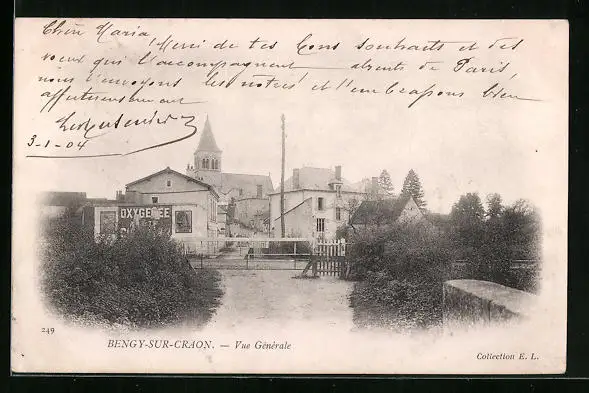 Chère Maria
Merci de tes bons souhaits et des
vœux qui l'accompagnent absents de Paris,
nous t'envoyons les notres et t'embrassons bien
affectueusement
3-1-04
OXYGENEE
249
BENGY-SUR-CRAON. — Vue Générale
Collection E. L.